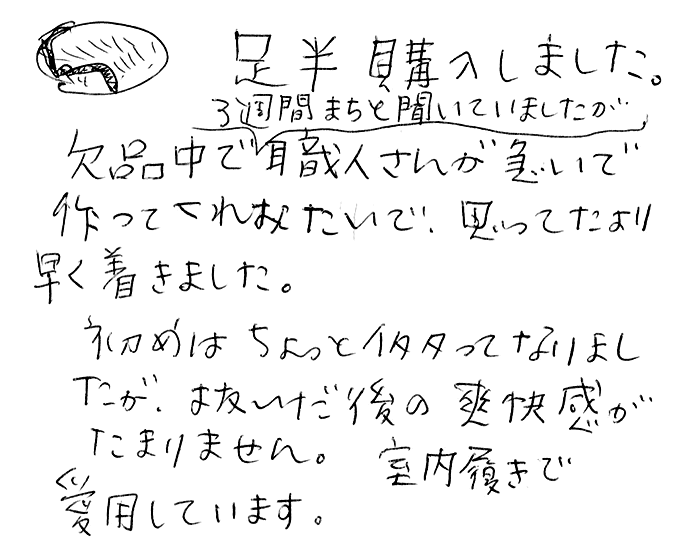 足半購入しました。
3週間まちと聞いていましたが
欠品中で職人さんが急いで
作ってくれたみたいで、思ってたより
早く着きました。
初めはちょっとイタタってなりまし
たが、抜いだ後の爽快感が
たまりません。室内履きで
愛用しています。